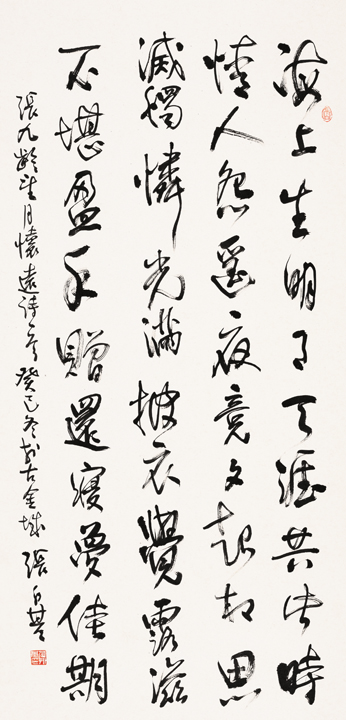 海上生明月天涯共此時
情人怨遥夜竟夕起相思
滅燭憐光滿披衣覺露滋
不堪盈手贈還寢夢佳期
張九齡望月懷遠詩一首癸巳冬於古金城張